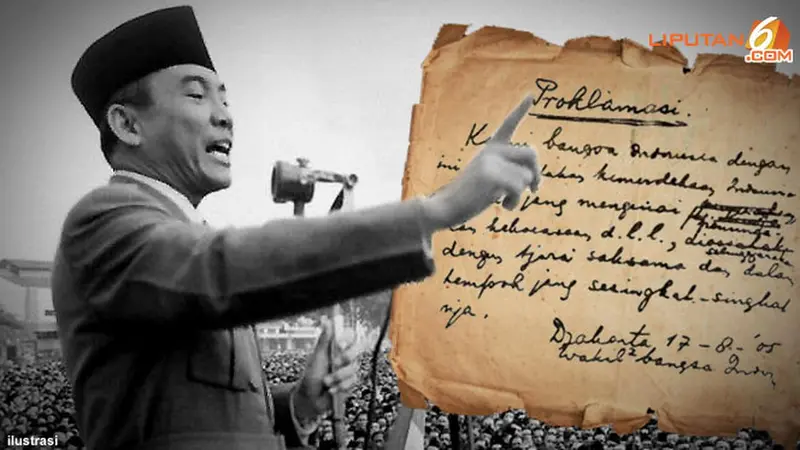 LIPUTAN6
.COM
Proklamasi.
Kami bangsa Indonesia dengan
ini kemerdekaan Indonesia
jang mengenai
kekoeasaan d.l.l., dioesahakan
dengan tjara saksama dan dalam
tempoh jang sesingkat-singkat
nja.
Djakarta, 17-8-'05
Wakil2 bangsa Indon
ilustrasi